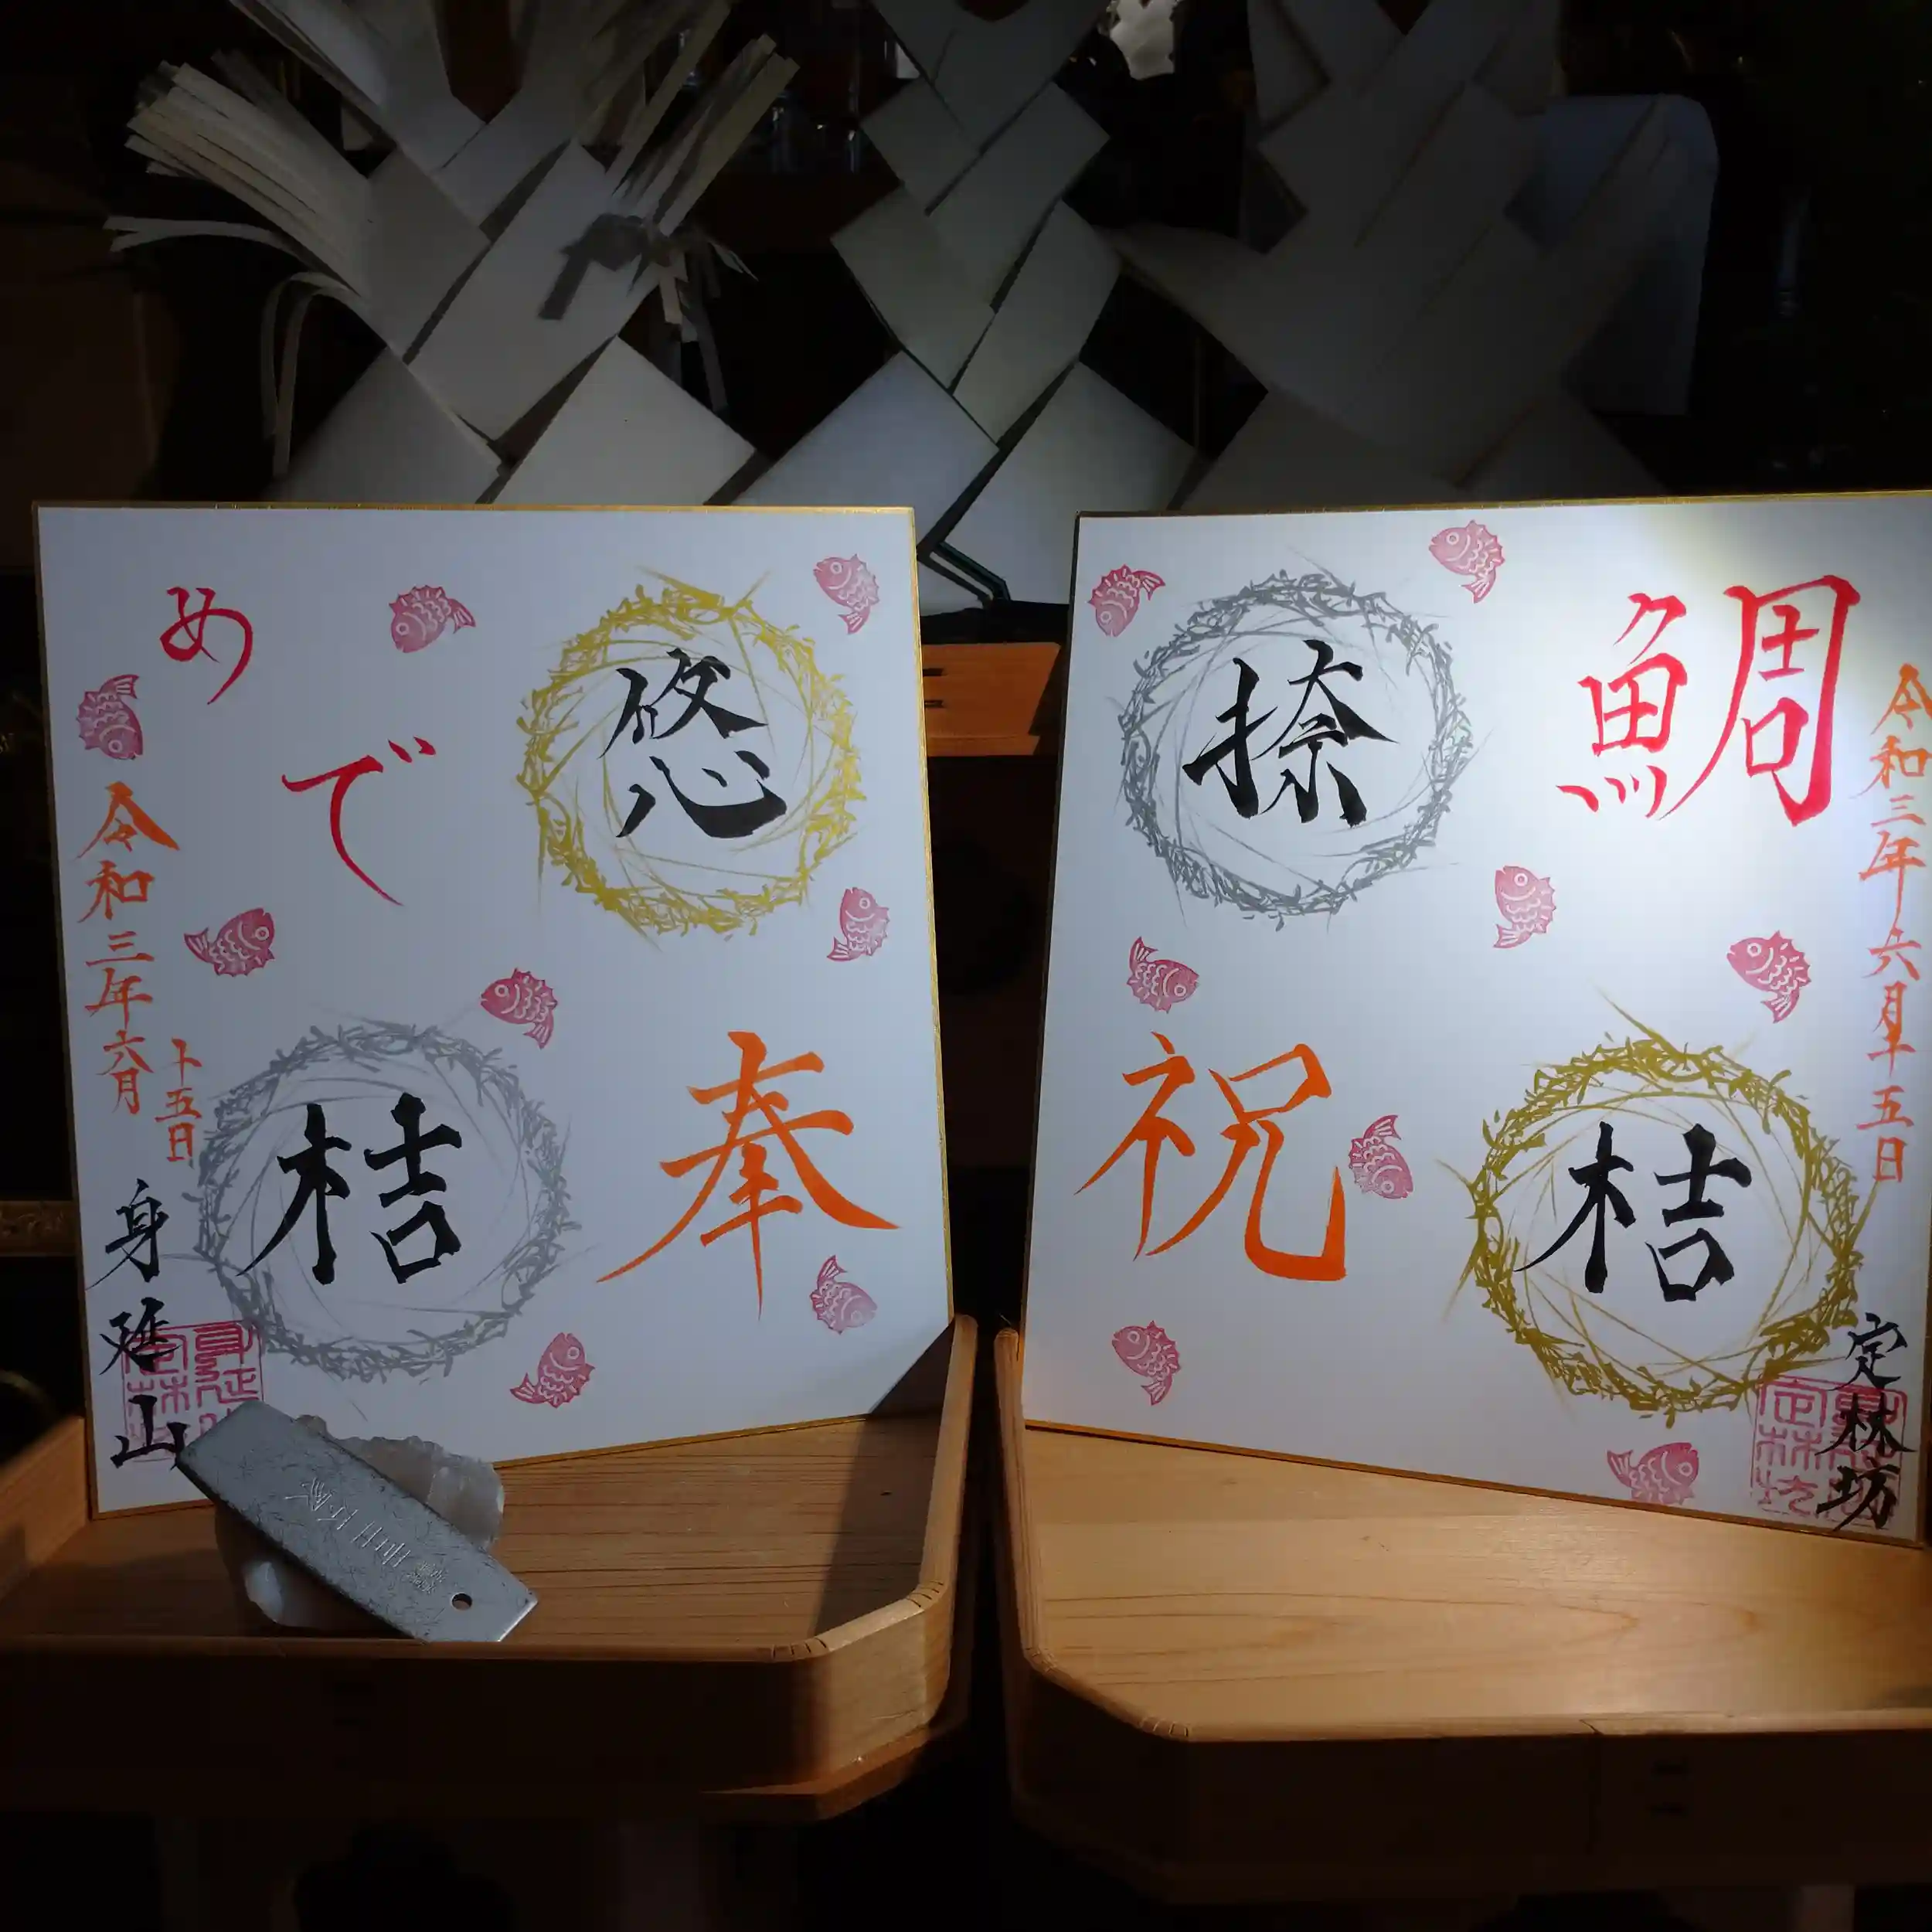 鯛
祝
捺
桔
令和三年六月十五日
定林坊
定林坊
めで
奉
悠
桔
令和三年六月
十五日
身延山
身延
定林